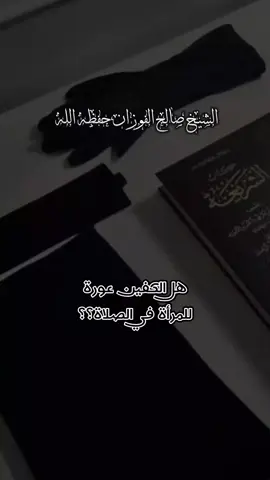 الشيخ صالح الفوزان حفظه الله
الشريعة
هل الكفين عورة
للمرأة في الصلاة؟؟